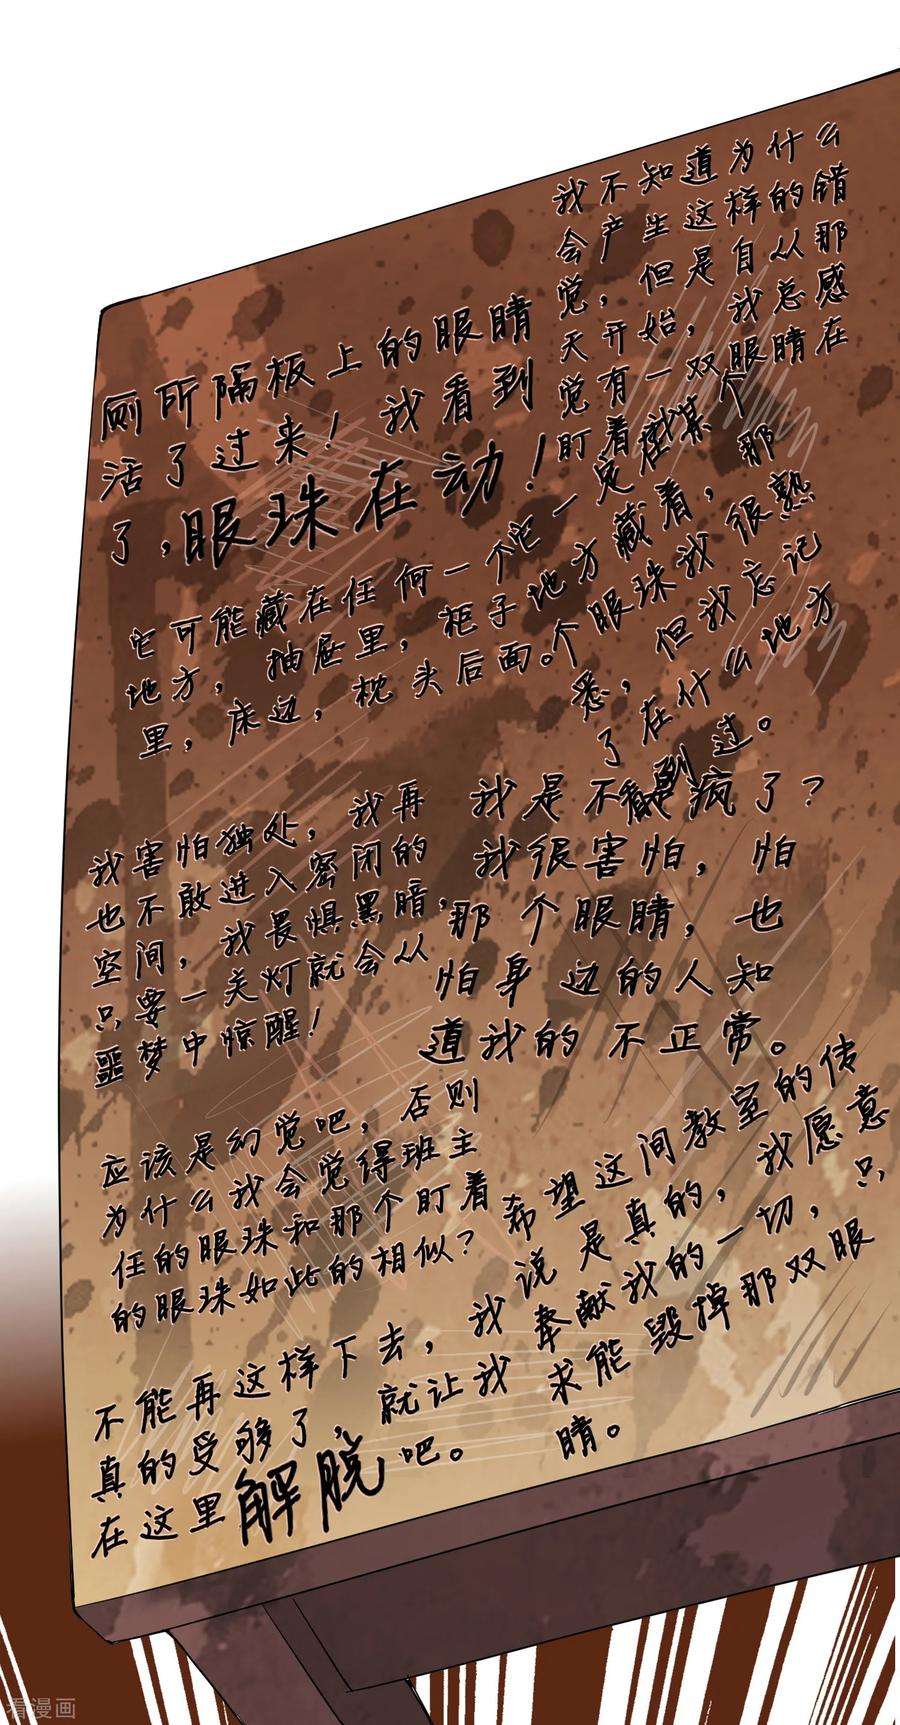 我不知道为什么
会产生这样的错
觉，但是自从那
天开始，我总感
觉有一双眼睛在
盯着我
厕所隔板上的眼睛
活了过来！我看到
了，眼珠在动！
它一定在某个
地方藏着，那
个眼珠我很熟
悉，但我忘记
了在什么地方
看到过。
它可能藏在任何一个
地方，抽屉里，柜子
里，床边，枕头后面。
我害怕独处，我再
也不敢进入密闭的
空间，我最惧黑暗，
只要一关灯就会从
噩梦中惊醒！
我是不是疯了？
我很害怕，怕
那个眼睛，也
怕身边的人知
道我的不正常。
应该是幻觉吧，否则
为什么我会觉得班主
任的眼珠和那个盯着
的眼珠如此的相似？
希望这间教室的传
说是真的，我愿意
奉献我的一切，只
求能毁掉那双眼
睛。
不能再这样下去，我
真的受够了，就让我
在这里解脱吧。
看漫画